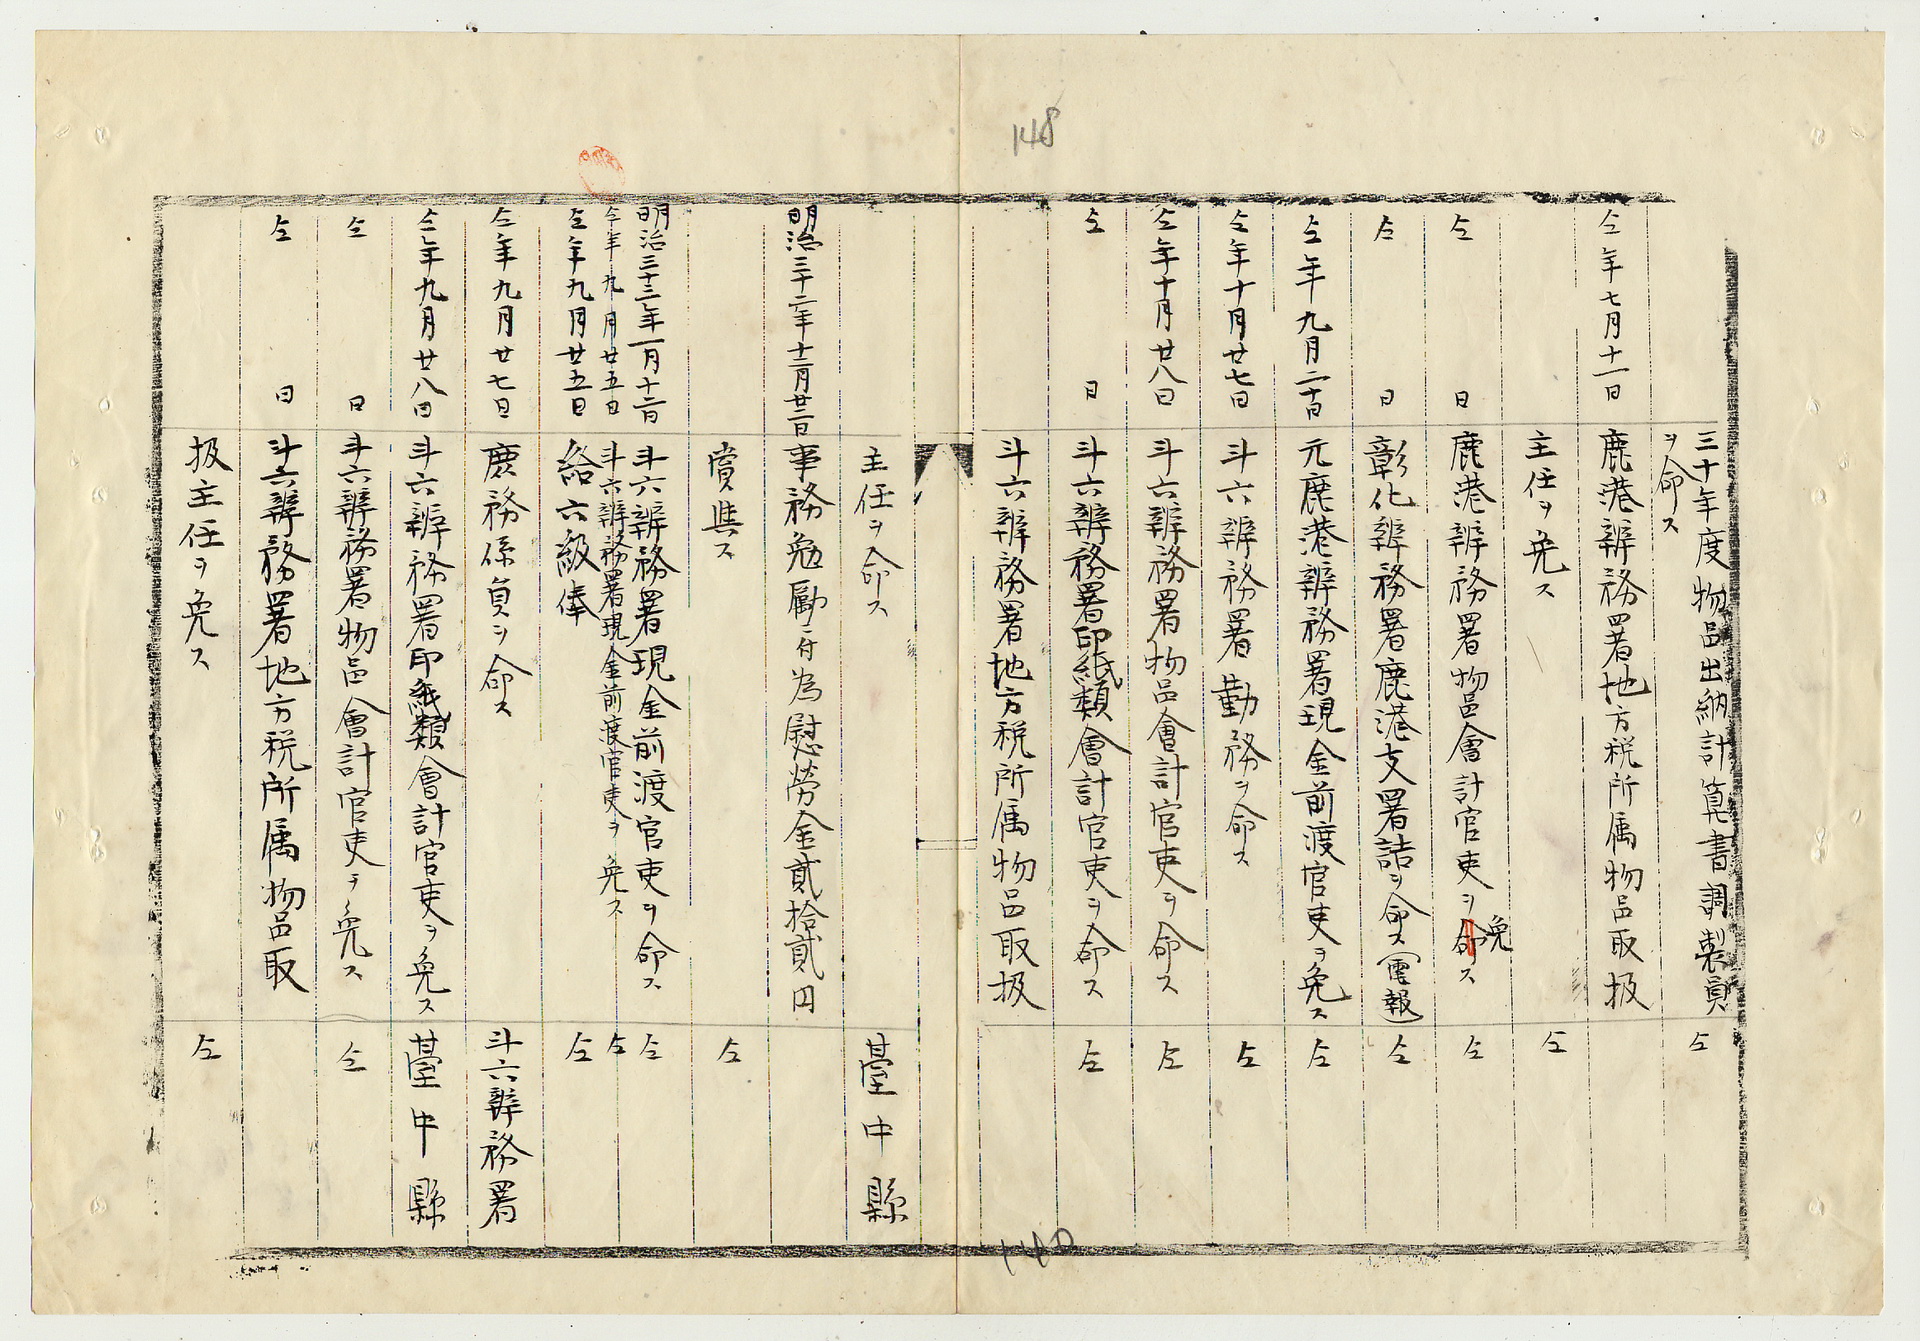 148
三十年度物品出納計算書調製員 仝
ヲ命ス
仝年七月十一日 鹿港辨務署地方税所属物品取扱
主任ヲ免ス 仝
仝 日 鹿港辨務署物品會計官吏ヲ命ス 仝
免
仝 日 彰化辨務署鹿港支署詰ヲ命ス(電報) 仝
仝年九月二十日 元鹿港辨務署現金前渡官吏ヲ免ス 仝
仝年十月廿七日 斗六辨務署勤務ヲ命ス 仝
仝年十月廿八日 斗六辨務署物品會計官吏ヲ命ス 仝
仝 日 斗六辨務署印紙類會計官吏ヲ命ス 仝
斗六辨務署地方税所属物品取扱
主任ヲ命ス 臺中縣
明治三十二年十二月廿二日 事務勉励ニ付為慰労金貳拾貳円
賞與ス 仝
明治三十三年一月十二日 斗六辨務署現金前渡官吏ヲ命ス 仝
仝年九月廿五日 斗六辨務署現金前渡官吏ヲ免ス 仝
仝年九月廿五日 給六級俸 仝
仝年九月廿七日 庶務係員ヲ命ス 斗六辨務署
仝年九月廿八日 斗六辨務署印紙類會計官吏ヲ免ス 臺中縣
仝 日 斗六辨務署物品會計官吏ヲ免ス 仝
仝 日 斗六辨務署地方税所属物品取
扱主任ヲ免ス 仝
140